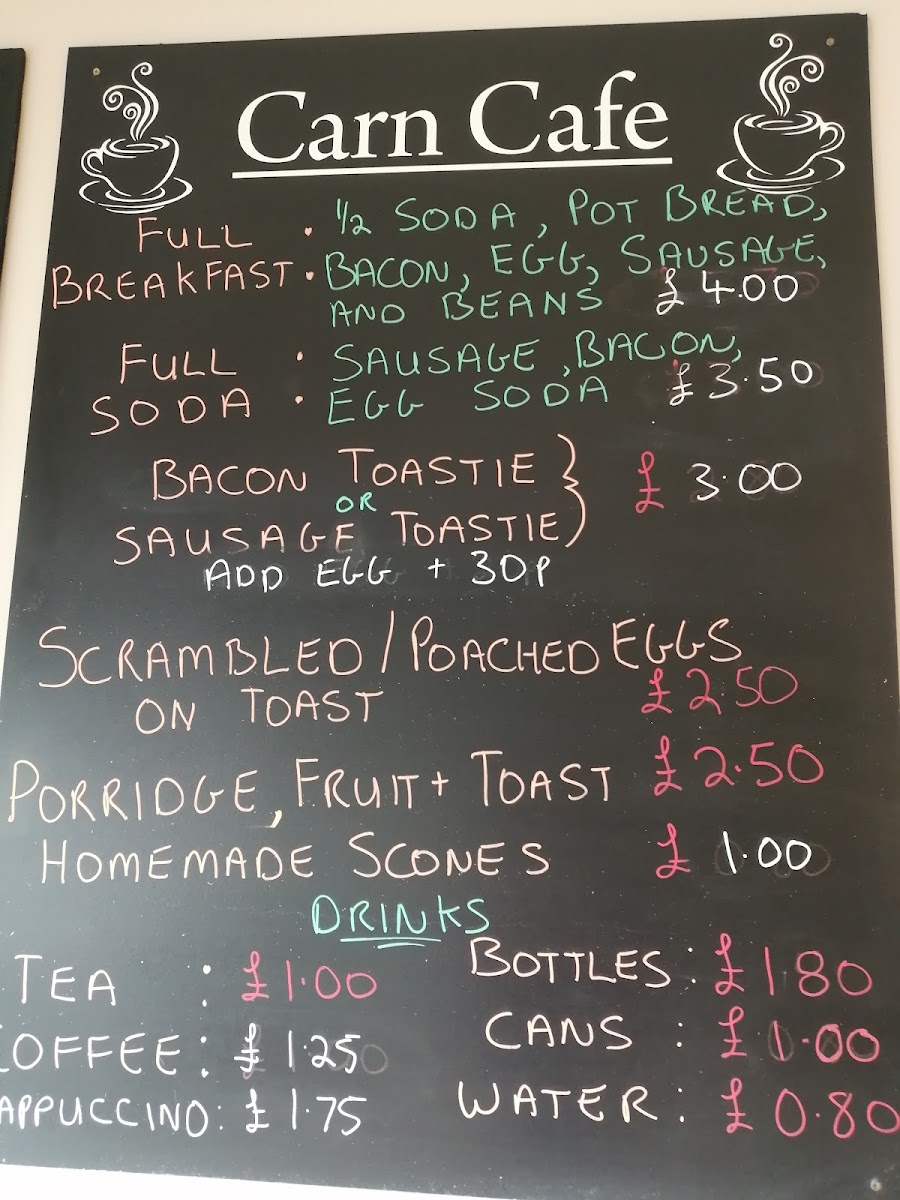 Carn Cafe
FULL BREAKFAST : 1/2 SODA, POT BREAD,
BACON, EGG, SAUSAGE,
AND BEANS £4.00
FULL SODA : SAUSAGE, BACON,
EGG SODA £3.50
BACON TOASTIE
OR
SAUSAGE TOASTIE } £3.00
ADD EGG + 30P
SCRAMBLED/POACHED EGGS
ON TOAST £2.50
PORRIDGE, FRUIT + TOAST £2.50
HOMEMADE SCONES £1.00
DRINKS
TEA : £1.00
COFFEE : £1.25
CAPPUCCINO : £1.75
BOTTLES : £1.80
CANS : £1.00
WATER : £0.80